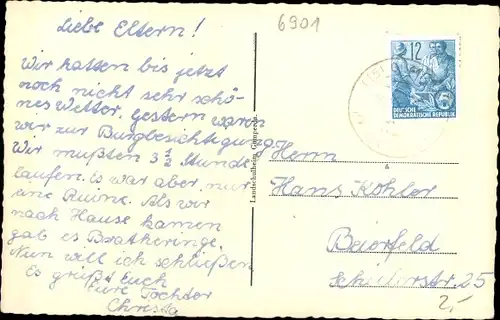 Liebe Eltern!
6901
Wir hatten bis jetzt
noch nicht sehr schö-
nes Wetter, gestern waren
wir zur Burgbesichtigung.
Wir mußten 3 ½ Stunde
laufen. Es war aber nur
eine Ruine. Als wir
nach Hause kamen
gab es Bratheringe.
Nun will ich schließen
Es grüßt Euch
Eure Tochter
Christa
Landschulheim
12
DEUTSCHE
DEMOKRATISCHE REPUBLIK
Herrn
Hans Köhler
Beierfeld
Schillerstr. 25
2,-